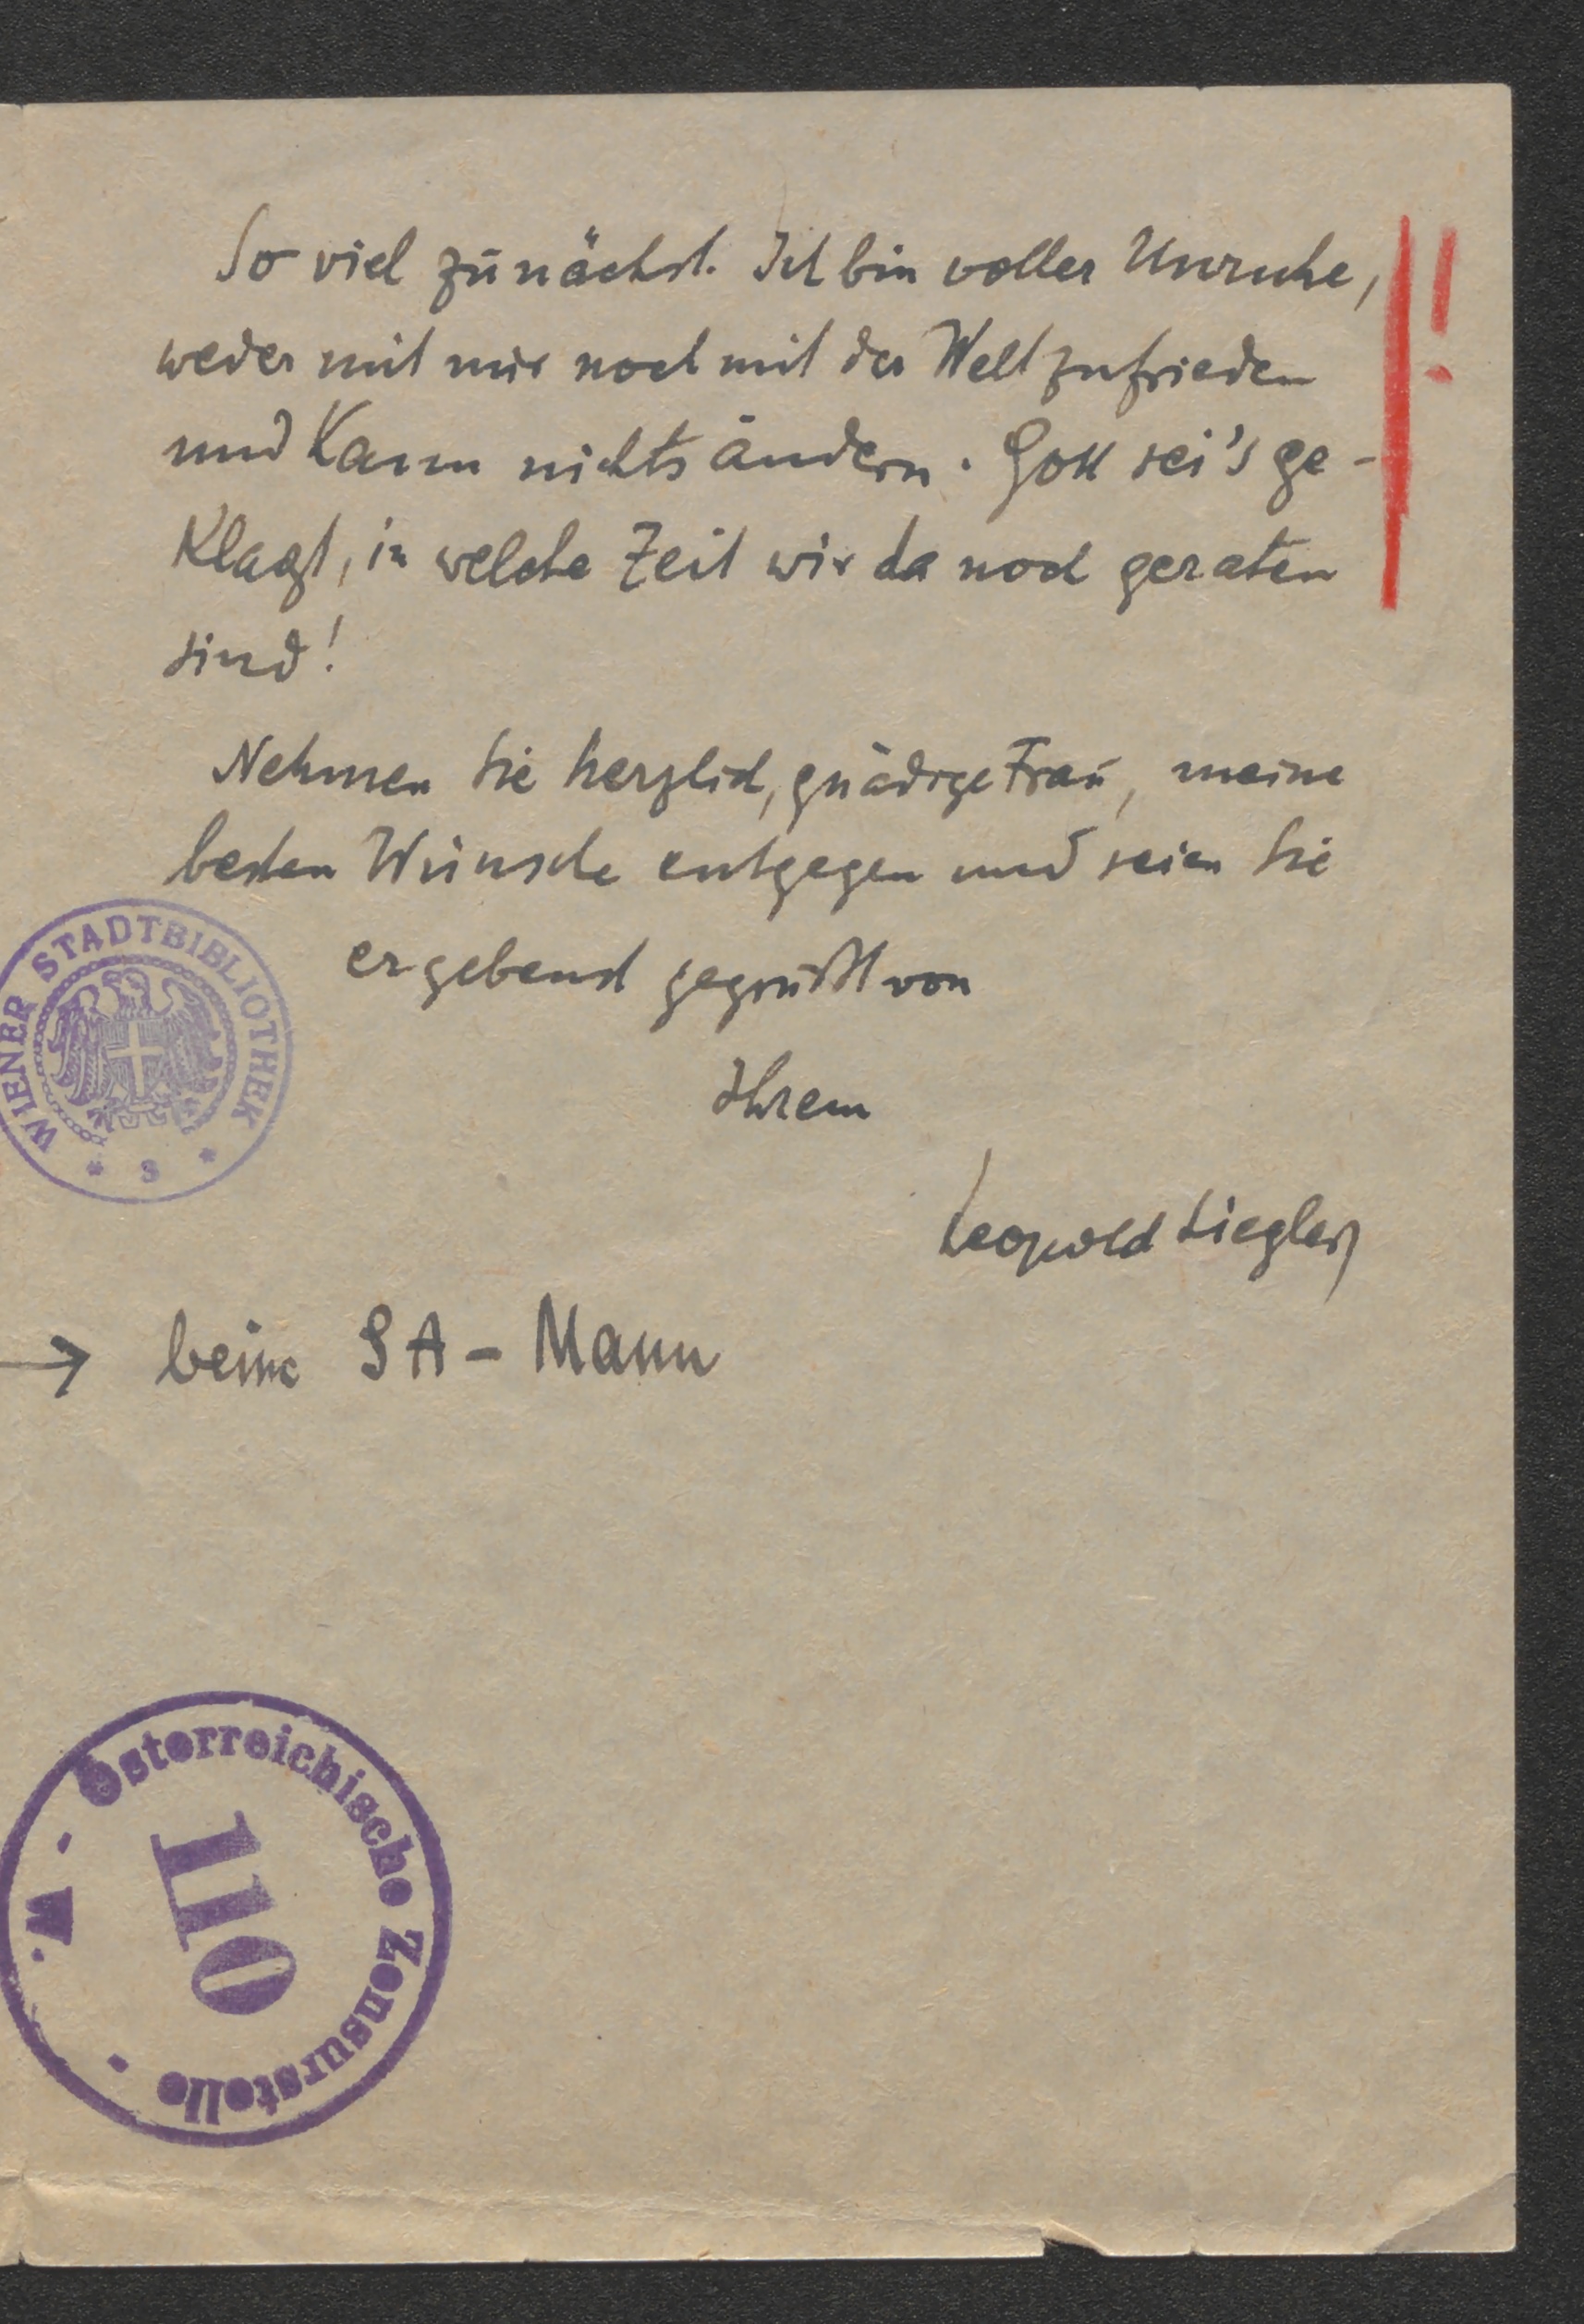 So viel zunächst. Ich bin voller Unruhe,
weder mit mir noch mit der Welt zufrieden
und kann nichts ändern. Gott sei's ge-
klagt, in welche Zeit wir da noch geraten
sind!
Nehmen Sie herzlich, gnädige Frau, meine
besten Wünsche entgegen und seien Sie
ergebenst gegrüßt von
Ihrem
Leopold Liegler
WIENER STADTBIBLIOTHEK
* S *
→ beim SA-Mann
Österreichische Zensurstelle
110
· W. ·